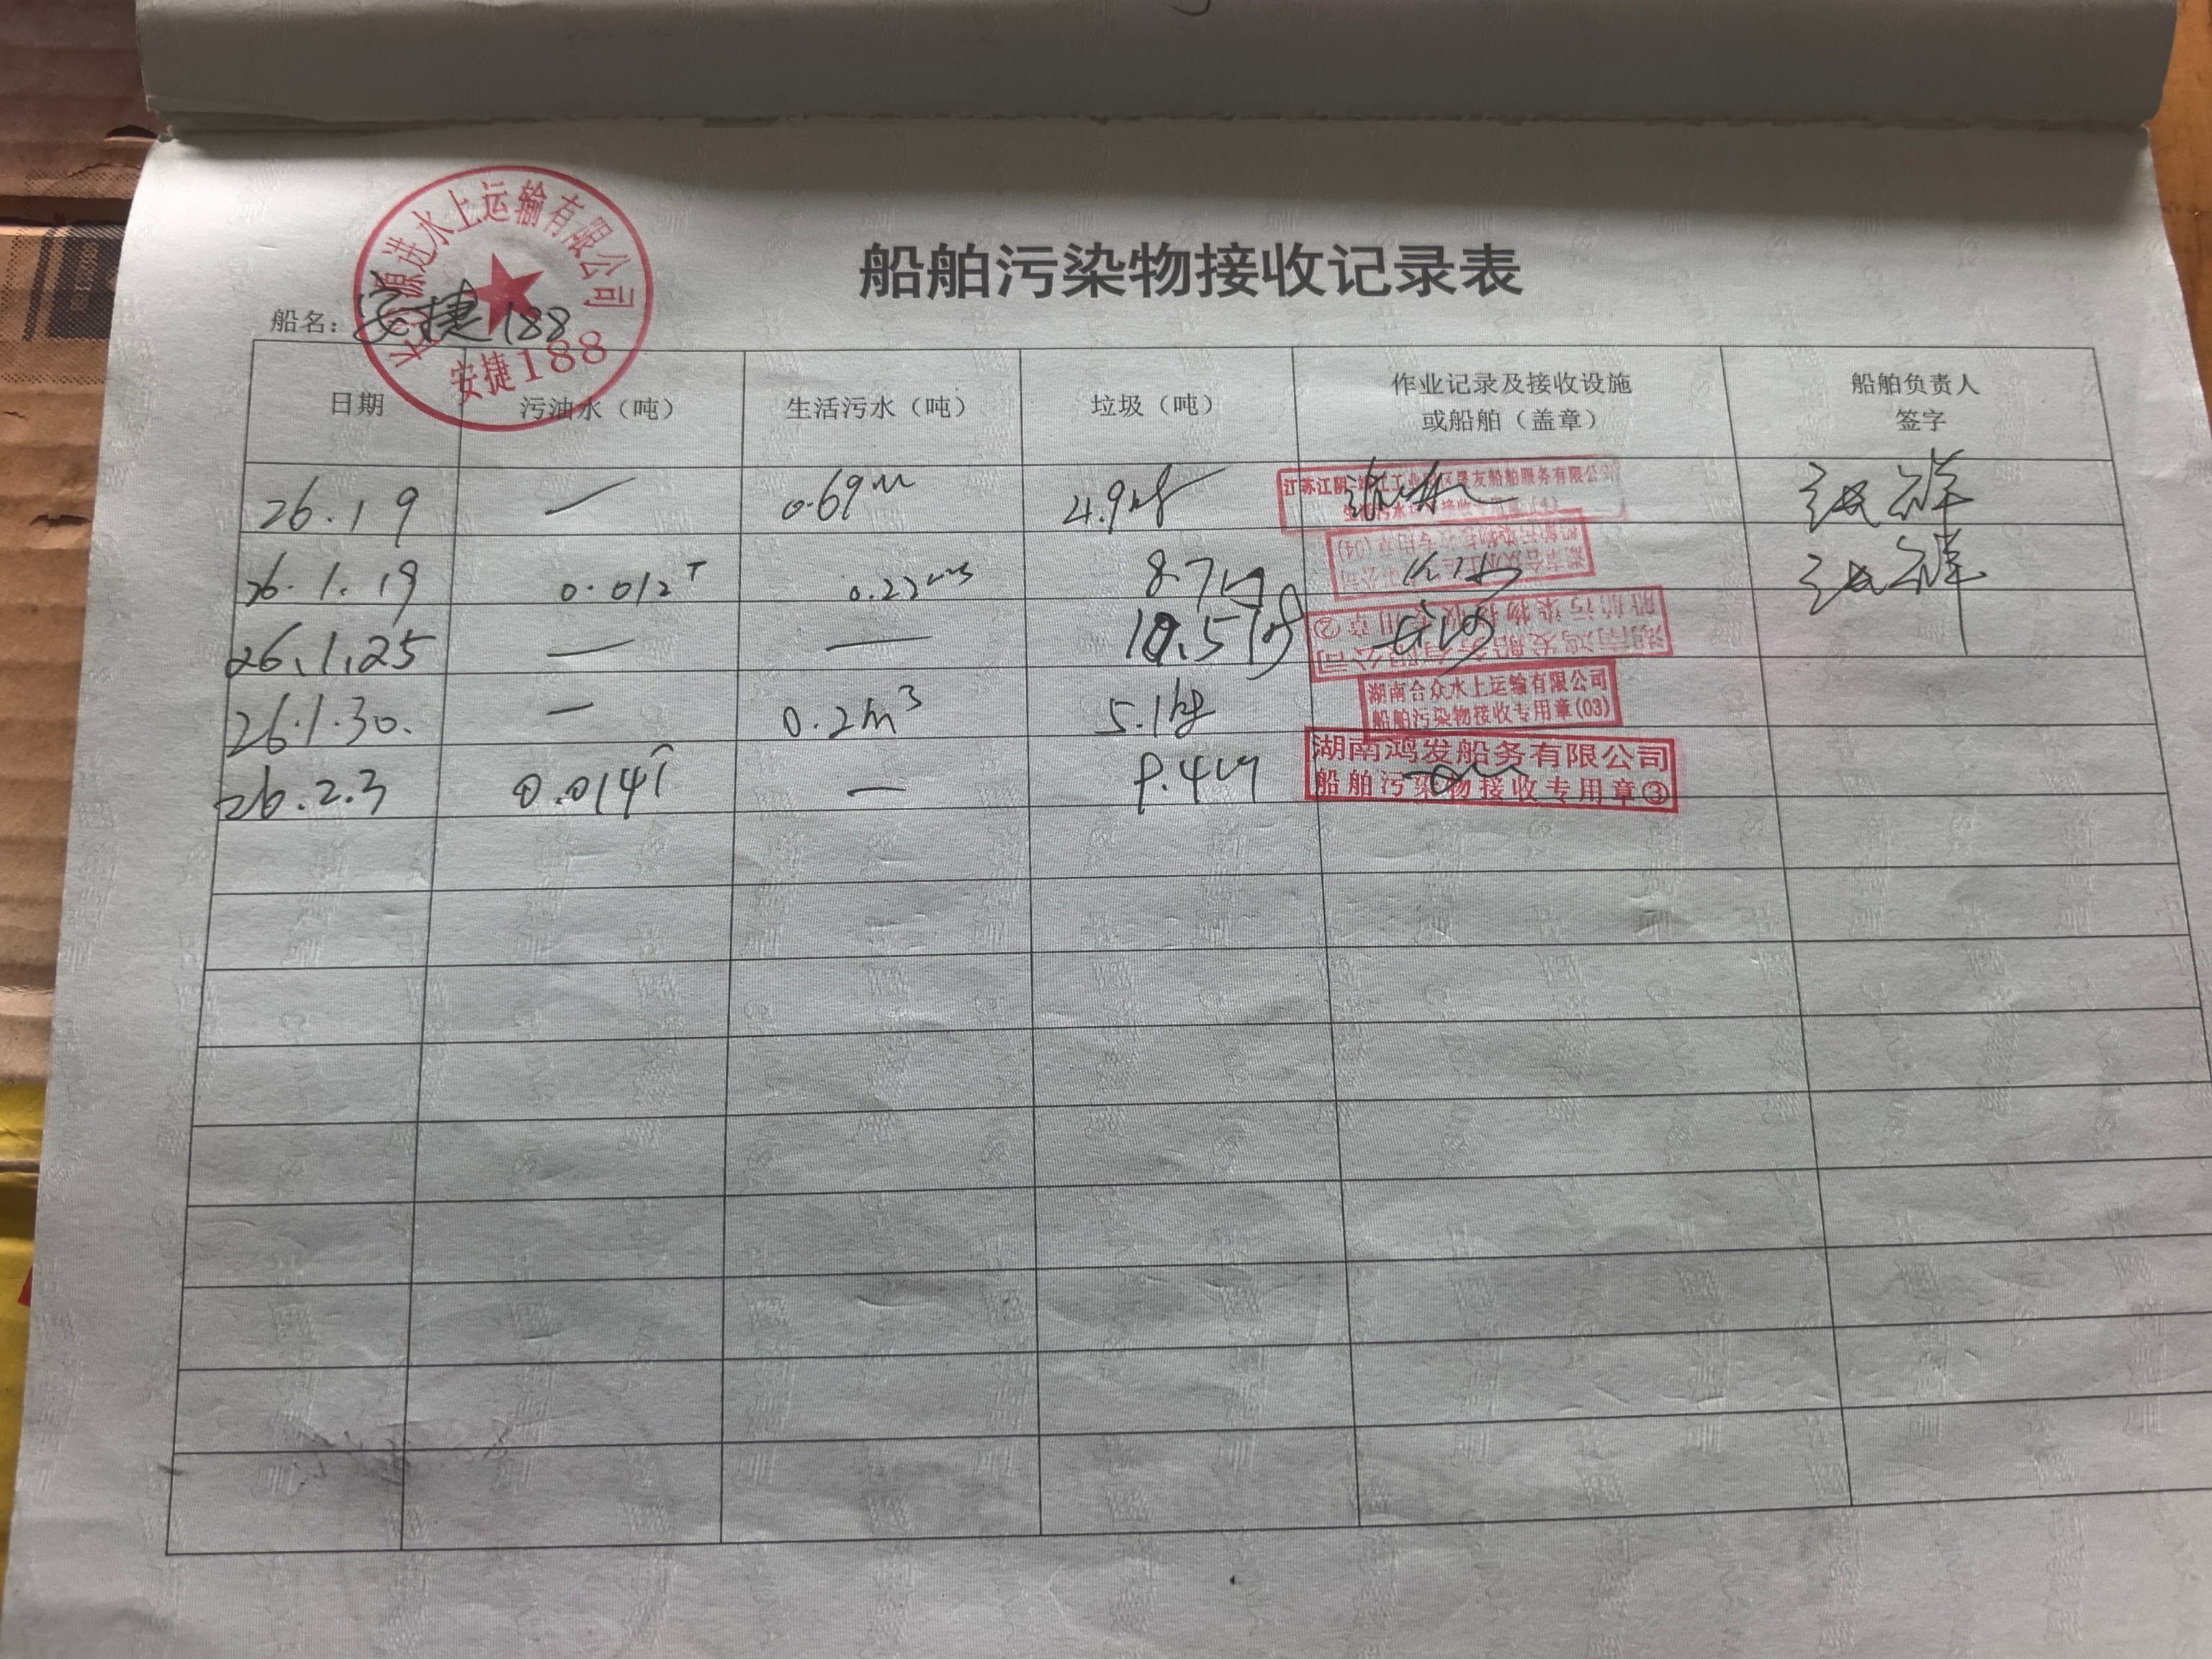 船舶污染物接收记录表
源进水上运输有限公司
安捷188
船名：安捷188
日期 污油水（吨） 生活污水（吨） 垃圾（吨） 作业记录及接收设施或船舶（盖章） 船舶负责人签字
26.1.9 — 0.69 4.9kg
江苏江阴 工业 区 友船舶服务有限公司
26.1.19 0.012T 0.22m3 8.7kg
船舶污染物接收专用章(04)
26.1.25 — — 10.5kg
湖南鸿发船务有限公司
船舶污染物接收专用章②
26.1.30. — 0.2m³ 5.1kg
湖南合众水上运输有限公司
船舶污染物接收专用章(03)
26.2.3 0.014T — 9.4kg
湖南鸿发船务有限公司
船舶污染物接收专用章③